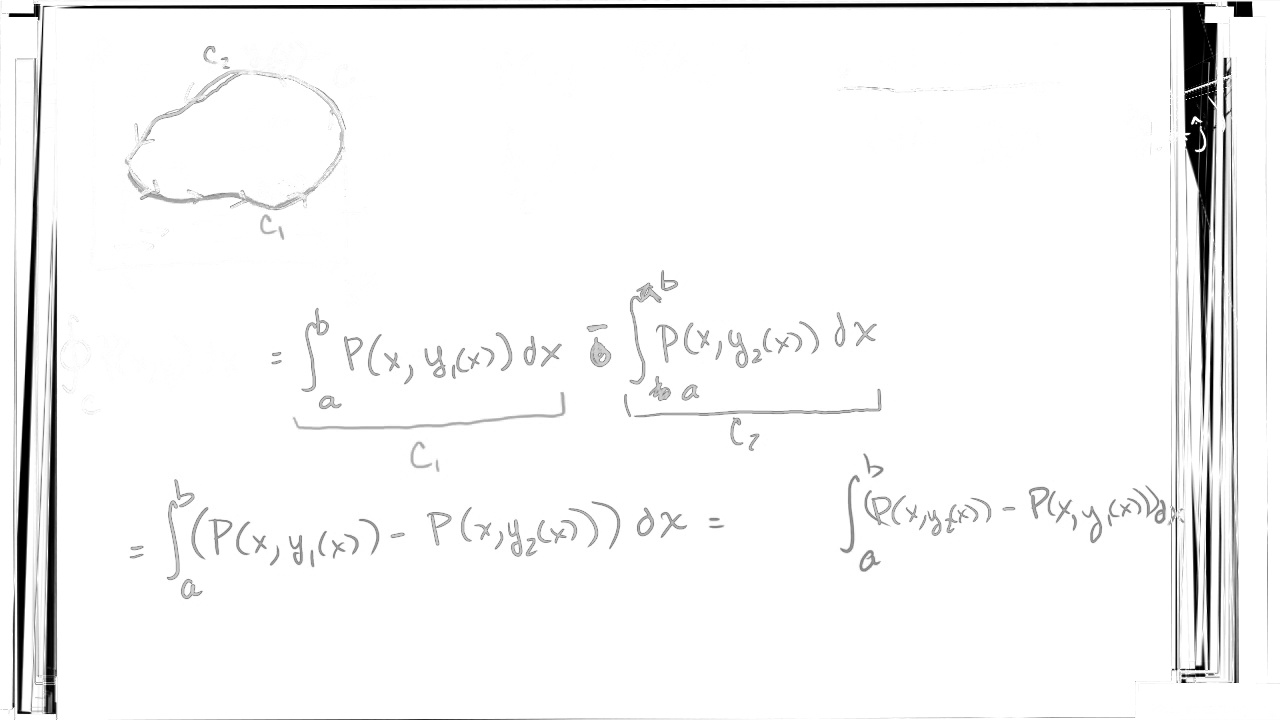 C₂
C₁
ĵ
= ∫ₐᵇ P(x, y₁(x)) dx - ∫ₐᵇ P(x, y₂(x)) dx
C₁ C₂
= ∫ₐᵇ (P(x, y₁(x)) - P(x, y₂(x))) dx = ∫ₐᵇ (P(x, y₂(x)) - P(x, y₁(x))) dx